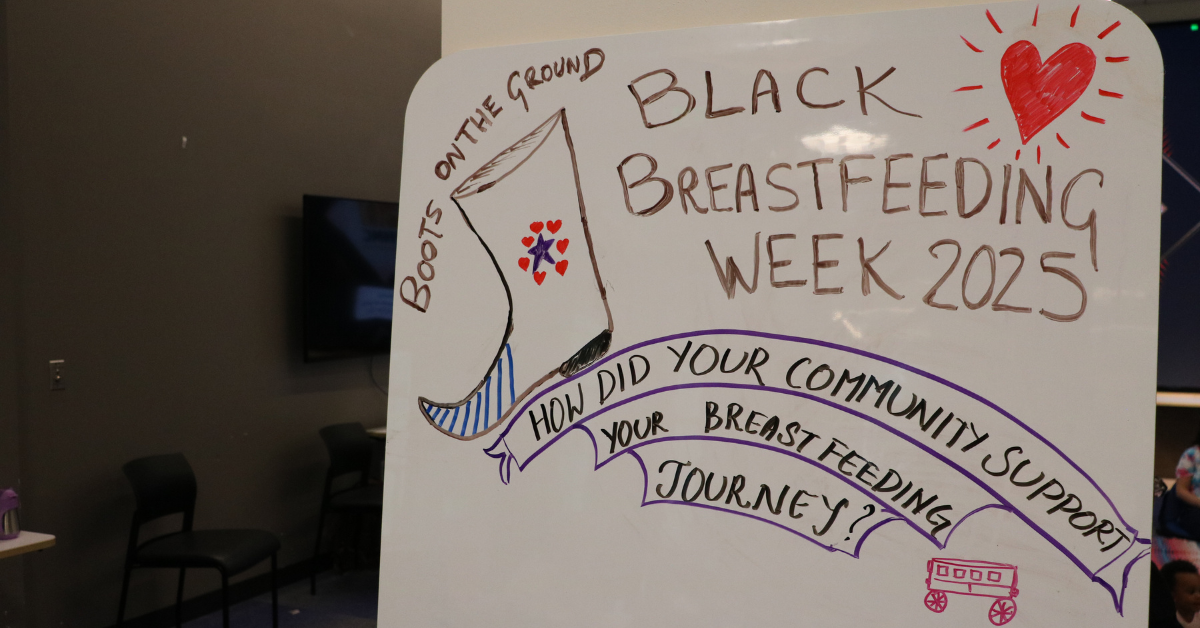 BOOTS ON THE GROUND
BLACK
BREASTFEEDING
WEEK 2025
HOW DID YOUR COMMUNITY SUPPORT
YOUR BREASTFEEDING
JOURNEY?